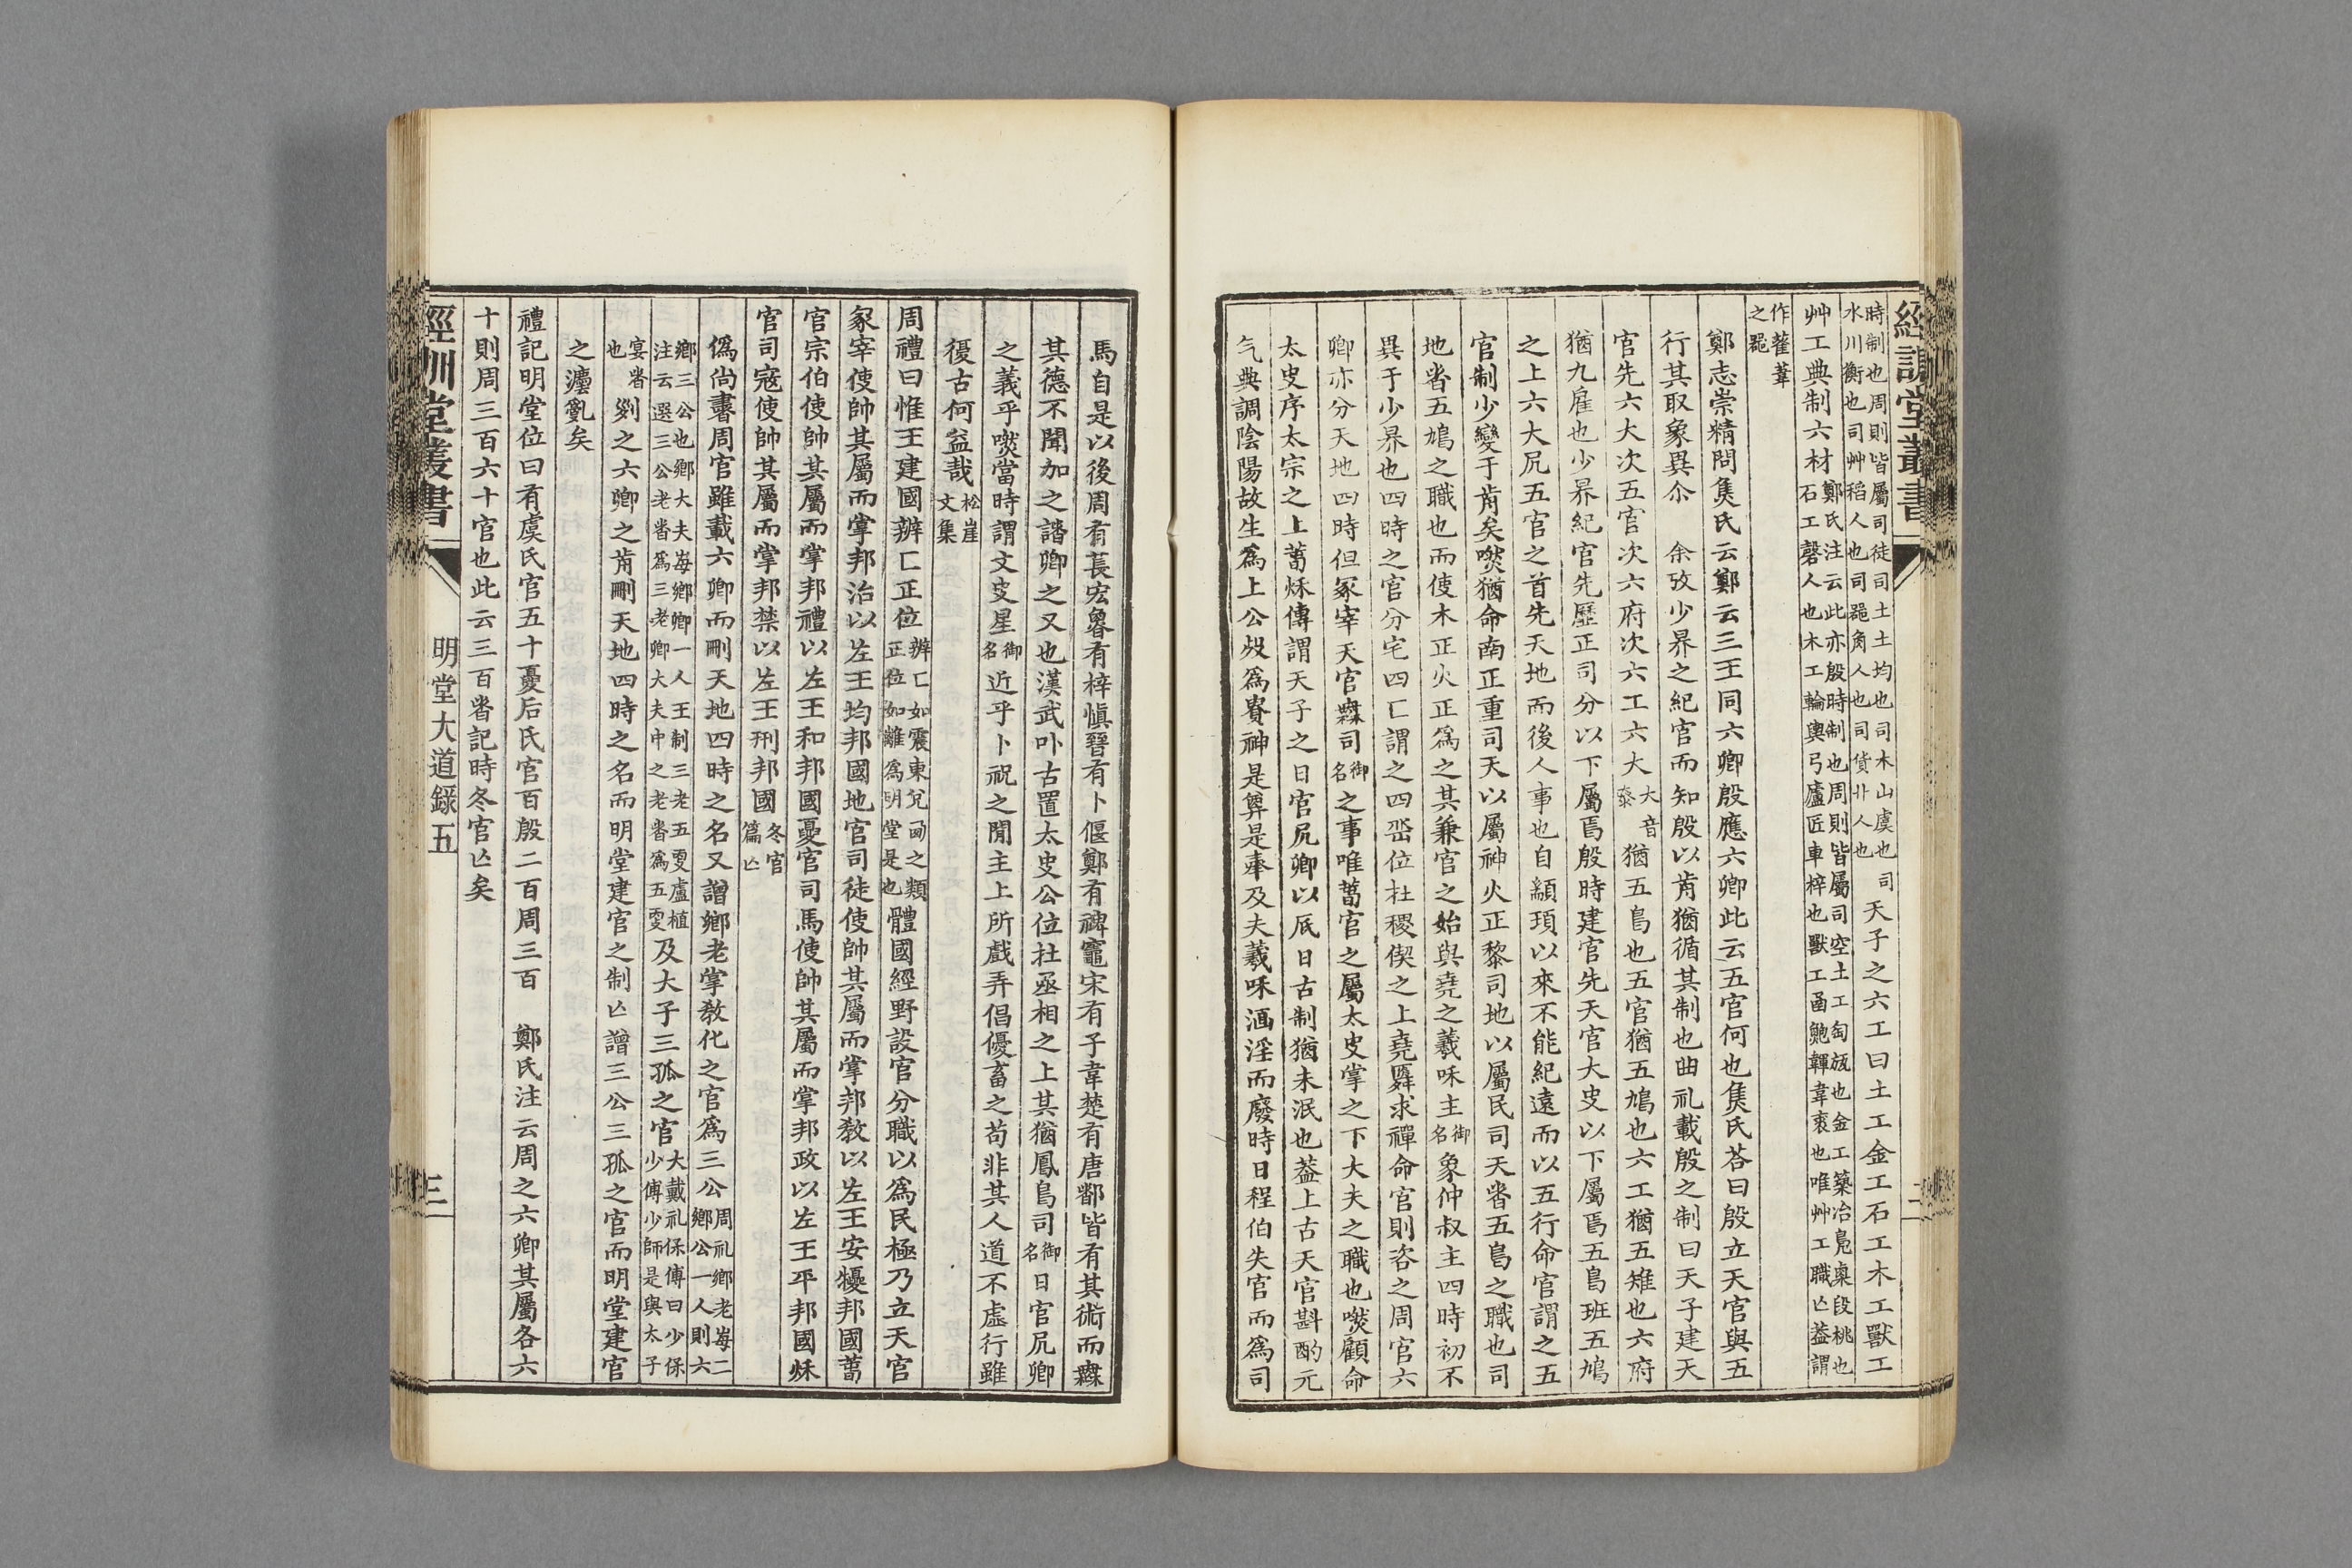 經訓堂叢書
時制也周則皆屬司徒司土土均也司木山虞也司
水川衡也司艸稻人也司器角人也司貨卝人也
天子之六工曰土工金工石工木工獸工
艸工典制六材
鄭氏注云此亦殷時制也周則皆屬司空土工匋瓬也金工築冶鳧㮚段桃也
石工磬人也木工輪輿弓廬匠車梓也獸工函鮑韗韋裘也唯艸工職亾葢謂
作萑葦
之器
鄭志崇精問焦氏云鄭云三王同六卿殷應六卿此云五官何也焦氏荅曰殷立天官與五
行其取象異尒　余攷少昦之紀官而知殷以歬猶循其制也曲礼載殷之制曰天子建天
官先六大次五官次六府次六工六大大音泰猶五鳥也五官猶五鳩也六工猶五雉也六府
猶九雇也少昦紀官先歷正司分以下屬焉殷時建官先天官大史以下屬焉五鳥班五鳩
之上六大凥五官之首先天地而後人事也自顓頊以來不能紀遠而以五行命官謂之五
官制少變于歬矣然猶命南正重司天以屬神火正黎司地以屬民司天者五鳥之職也司
地者五鳩之職也而使木正火正爲之其兼官之始與堯之羲咊主御名象仲叔主四時初不
異于少昦也四時之官分宅四匚謂之四岳位在稷偰之上堯舜求禪命官則咨之周官六
卿亦分天地四時但冢宰天官無司御名之事唯萅官之屬太史掌之下大夫之職也然顧命
太史序太宗之上萅秌傳謂天子之日官凥卿以厎日古制猶未泯也葢上古天官斟酌元
气典調陰陽故生爲上公歿爲貴神是尊是奉及夫羲咊湎淫而廢時日程伯失官而爲司
馬自是以後周有萇宏魯有梓愼晉有卜偃鄭有裨竈宋有子韋楚有唐鄀皆有其術而無
其德不聞加之諸卿之又也漢武卟古置太史公位在丞相之上其猶鳳鳥司御名日官凥卿
之義乎然當時謂文史星御名近乎卜祝之閒主上所戲弄倡優畜之苟非其人道不虛行雖
復古何益哉松崖文集
周禮曰惟王建國辨匚正位辨匚如震東兌西之類正位如離爲明堂是也體國經野設官分職以爲民極乃立天官
冢宰使帥其屬而掌邦治以左王均邦國地官司徒使帥其屬而掌邦敎以左王安擾邦國萅
官宗伯使帥其屬而掌邦禮以左王和邦國夏官司馬使帥其屬而掌邦政以左王平邦國秌
官司寇使帥其屬而掌邦禁以左王刑邦國冬官篇亾
僞尙書周官雖載六卿而刪天地四時之名又譖鄉老掌敎化之官爲三公周礼鄉老每二鄉公一人則六
鄉三公也鄉大夫每鄉卿一人王制三老五叟盧植
注云選三公老者爲三老卿大夫中之老者爲五叟
及大子三孤之官大戴礼保傅曰少保少傅少師是與太子
宴者也
剟之六卿之歬刪天地四時之名而明堂建官之制亾譖三公三孤之官而明堂建官
之灋亂矣
禮記明堂位曰有虞氏官五十夏后氏官百殷二百周三百　鄭氏注云周之六卿其屬各六
十則周三百六十官也此云三百者記時冬官亾矣
經訓堂叢書
明堂大道錄五
三